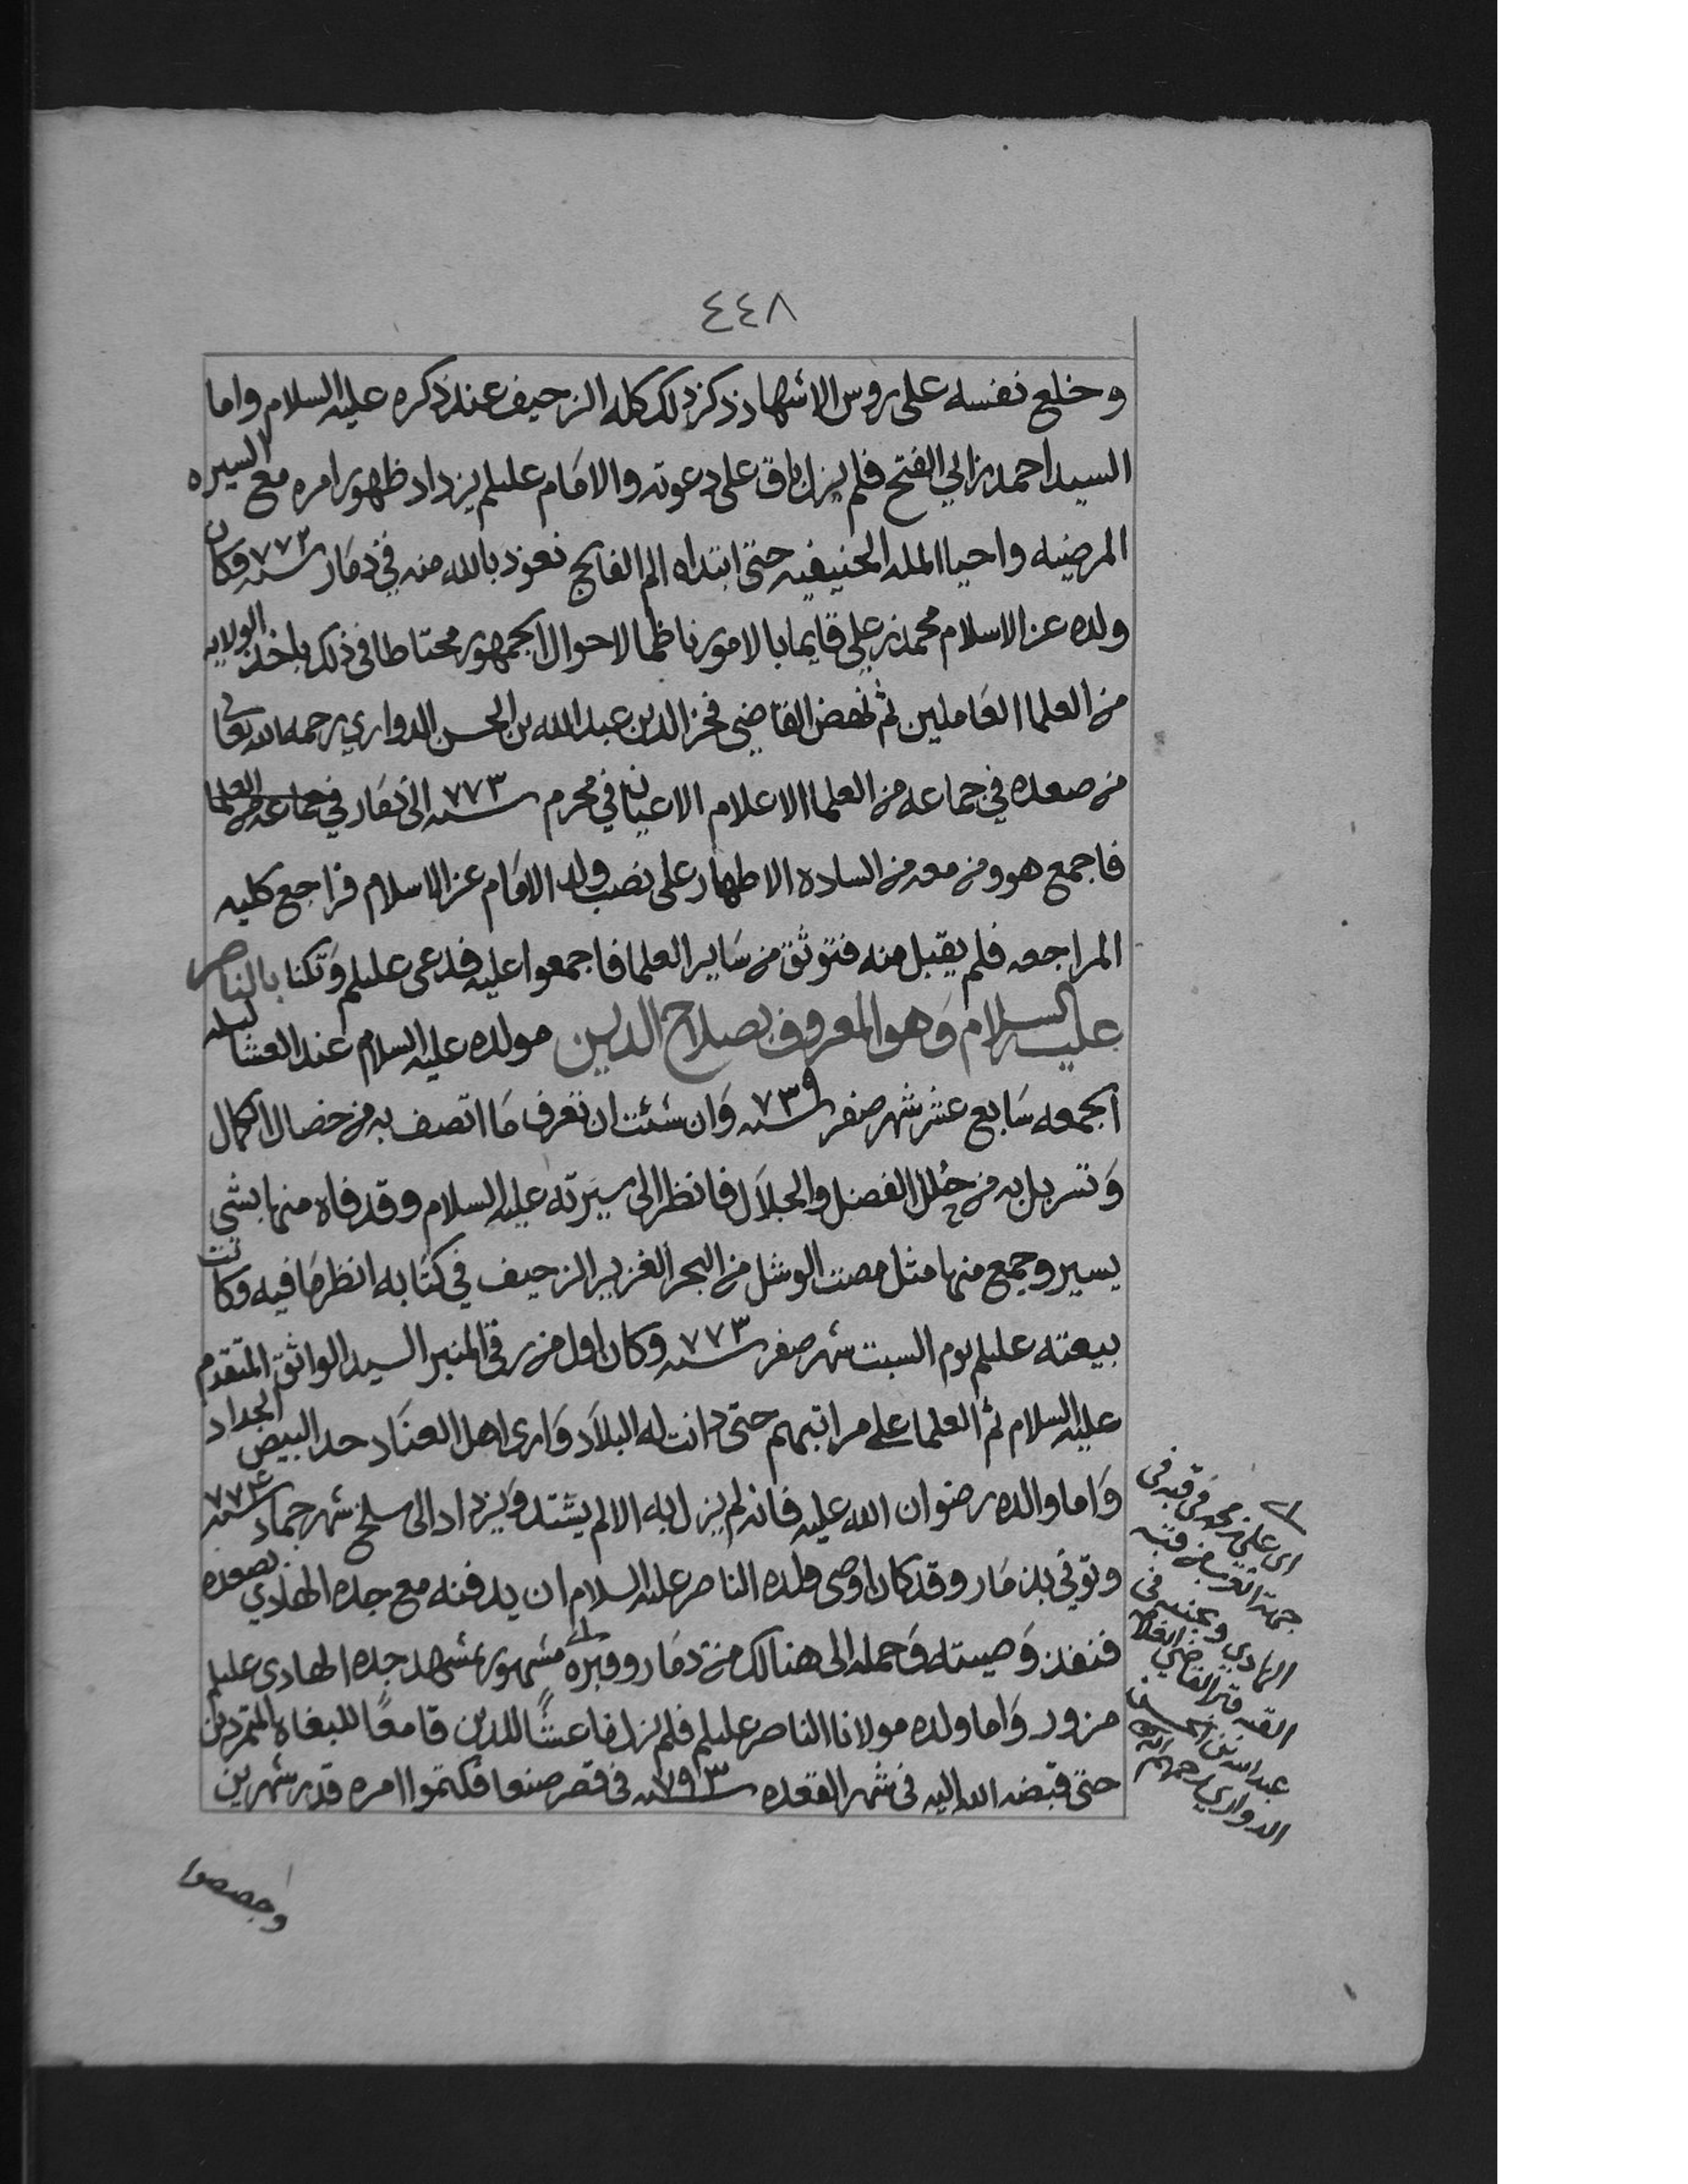 ٤٤٨
وخلع نفسه على روس الاشهاد ذكر ذلك كله الزحيف عند ذكره عليه السلام واما
السيد احمد بن ابي الفتح فلم يزل باق على دعوته والامام عليلم يزداد ظهور امره مع السيره
المرضيه واحيا المله الحنيفيه حتى ابتداه الم الفالج نعوذ بالله منه في ذمار سنه ٧٧٢ وكان
ولده عز الاسلام محمد بن علي قايما بالامور ناظما لاحوال الجمهور محتاطا في ذلك باخذ الولايه
من العلما العاملين ثم نهض القاضي فخر الدين عبد الله بن الحسن الدواري رحمه الله تعالى
من صعده في جماعه من العلما الاعلام الاعيان في محرم سنه ٧٧٣ الى ذمار في جماعه من العلما
فاجمع هو ومن معه من الساده الاطهار على نصب ولد الامام عز الاسلام فراجع كليه
المراجعه فلم يقبل منه فتوثق من ساير العلما فاجمعوا عليه فدعى عليلم وتكنا بالناصر
عليه السلام وهو المعروف بصلاح الدين مولده عليه السلام عند العشا ليله
الجمعه سابع عشر شهر صفر سنه ٧٣٩ وان شئت ان تعرف ما اتصف به من خصال الكمال
وتسربل به من حلل الفضل والجلال فانظر الى سيرته عليه السلام وقد فاه منها بشي
يسير وجمع منها مثل مصت الوشل من البحر الغزير الزحيف في كتابه انظر ما فيه وكانت
بيعته عليلم يوم السبت شهر صفر سنه ٧٧٣ وكان اول من رقى المنبر السيد الواثق المتقدم
عليه السلام ثم العلما على مراتبهم حتى دانت له البلاد وارى اهل العناد حد البيض الحداد
واما والده رضوان الله عليه فانه لم يزل به الالم يشتد ويزداد الى سلخ شهر جماد سنه ٧٧٤
وتوفي بذمار وقد كان اوصى ولده الناصر عليه السلام ان يدفنه مع جده الهادي بصعده
فنفذ وصيته وحمله الى هنالك من ذمار وقبره مشهور بمشهد جده الهادي عليلم
مزور واما ولده مولانا الناصر عليلم فلم يزل ناعشًا للدين قامعًا للبغاه المتمردين
حتى قبضه الله اليه في شهر القعده سنه ٧٩٣ في قصر صنعا فكتموا امره قدر شهرين
اي علي بن محمد في قبه في
جهة الغرب من قبة
الهادي وبجنبه في
القبه قبر القاضي العلامه
عبد الله بن الحسن
الدواري رحمهم الله
وجصصوا